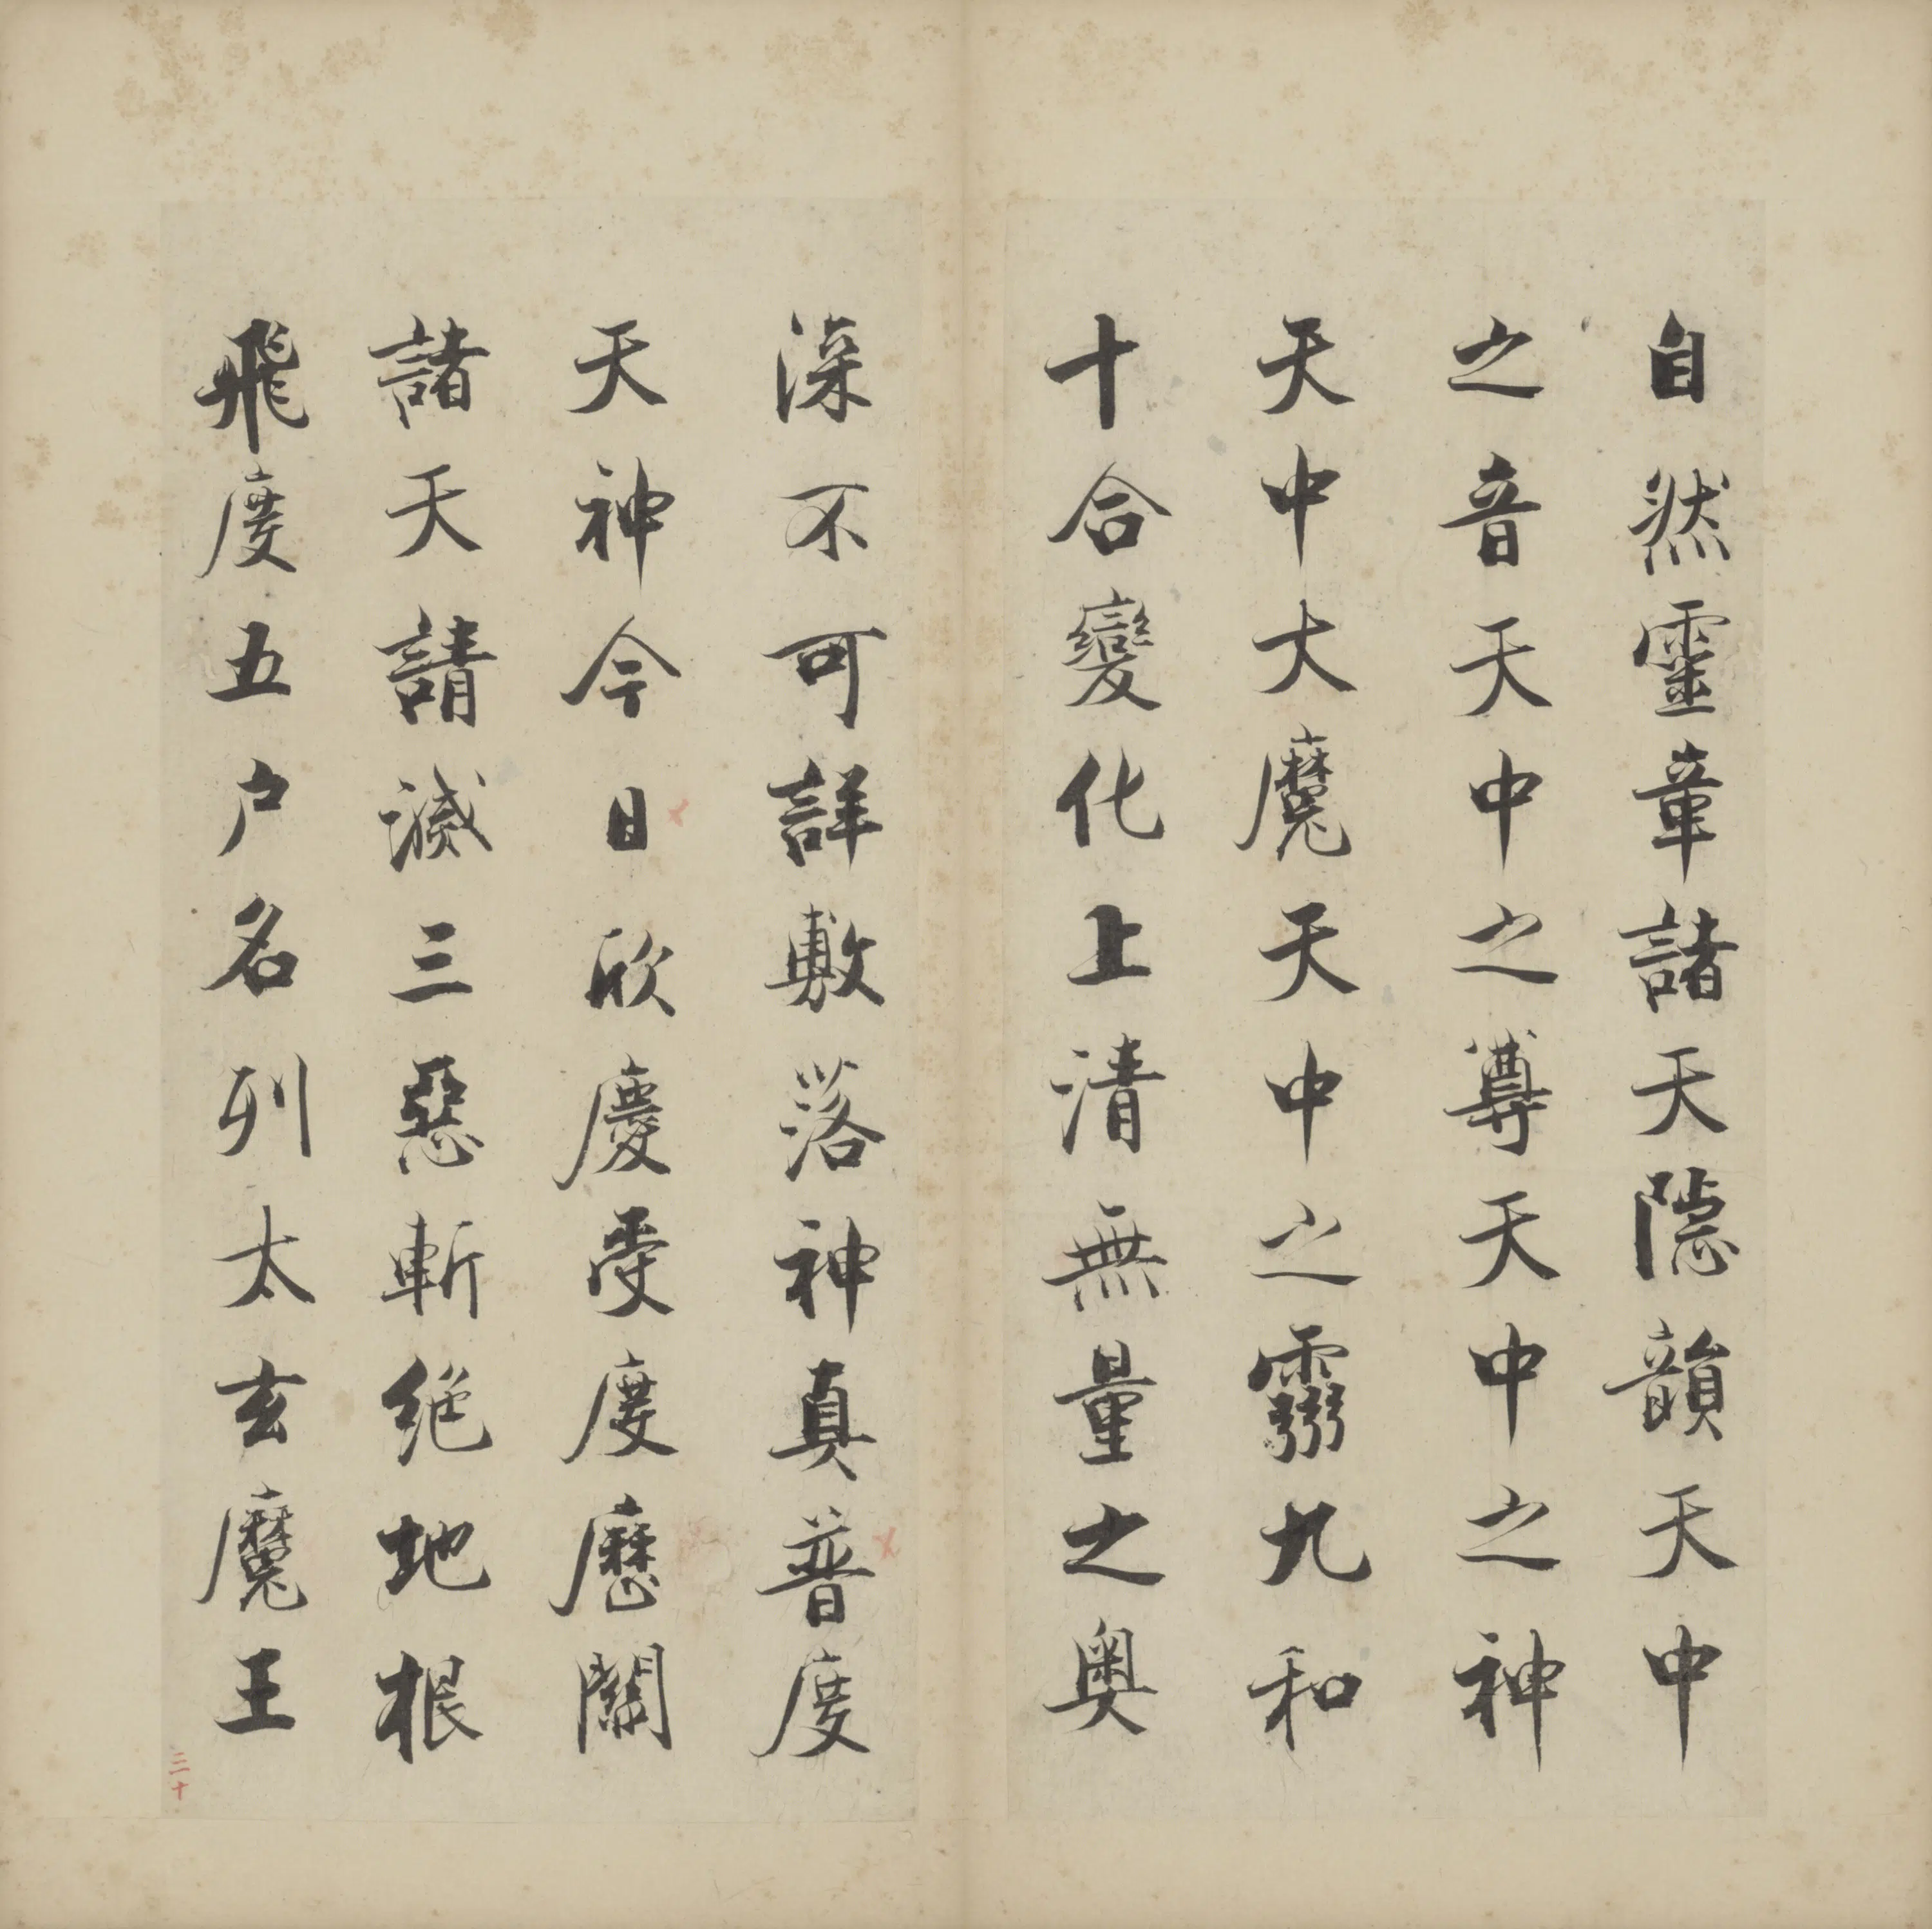 自然靈章諸天隱韻天中
之音天中之尊天中之神
天中大魔天中之靈九和
十合變化上清無量之奧
深不可詳敷落神真普度
天神今日欣慶受度歷關
諸天請滅三惡斬絕地根
飛度五戶名列太玄魔王
三十